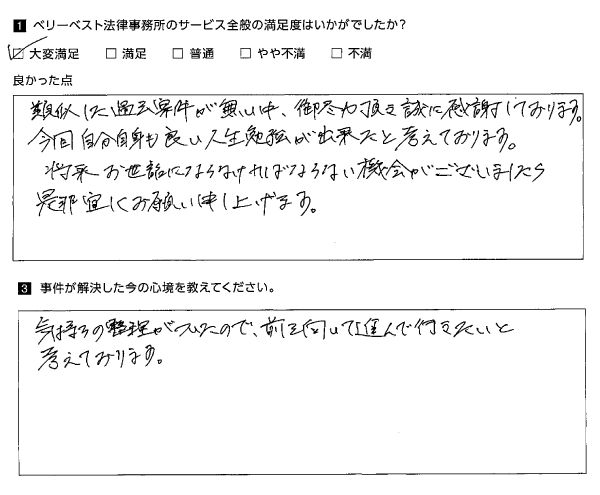 1 ベリーベスト法律事務所のサービス全般の満足度はいかがでしたか?
☑ 大変満足 □ 満足 □ 普通 □ やや不満 □ 不満
良かった点
類似した過去案件が無い中、御尽力頂き誠に感謝しております。
今回自分自身も良い人生勉強が出来たと考えております。
将来お世話にならなければならない機会がございましたら
是非宜しくお願い申し上げます。
3 事件が解決した今の心境を教えてください。
気持ちの整理がついたので、前を向いて進んで行きたいと
考えております。